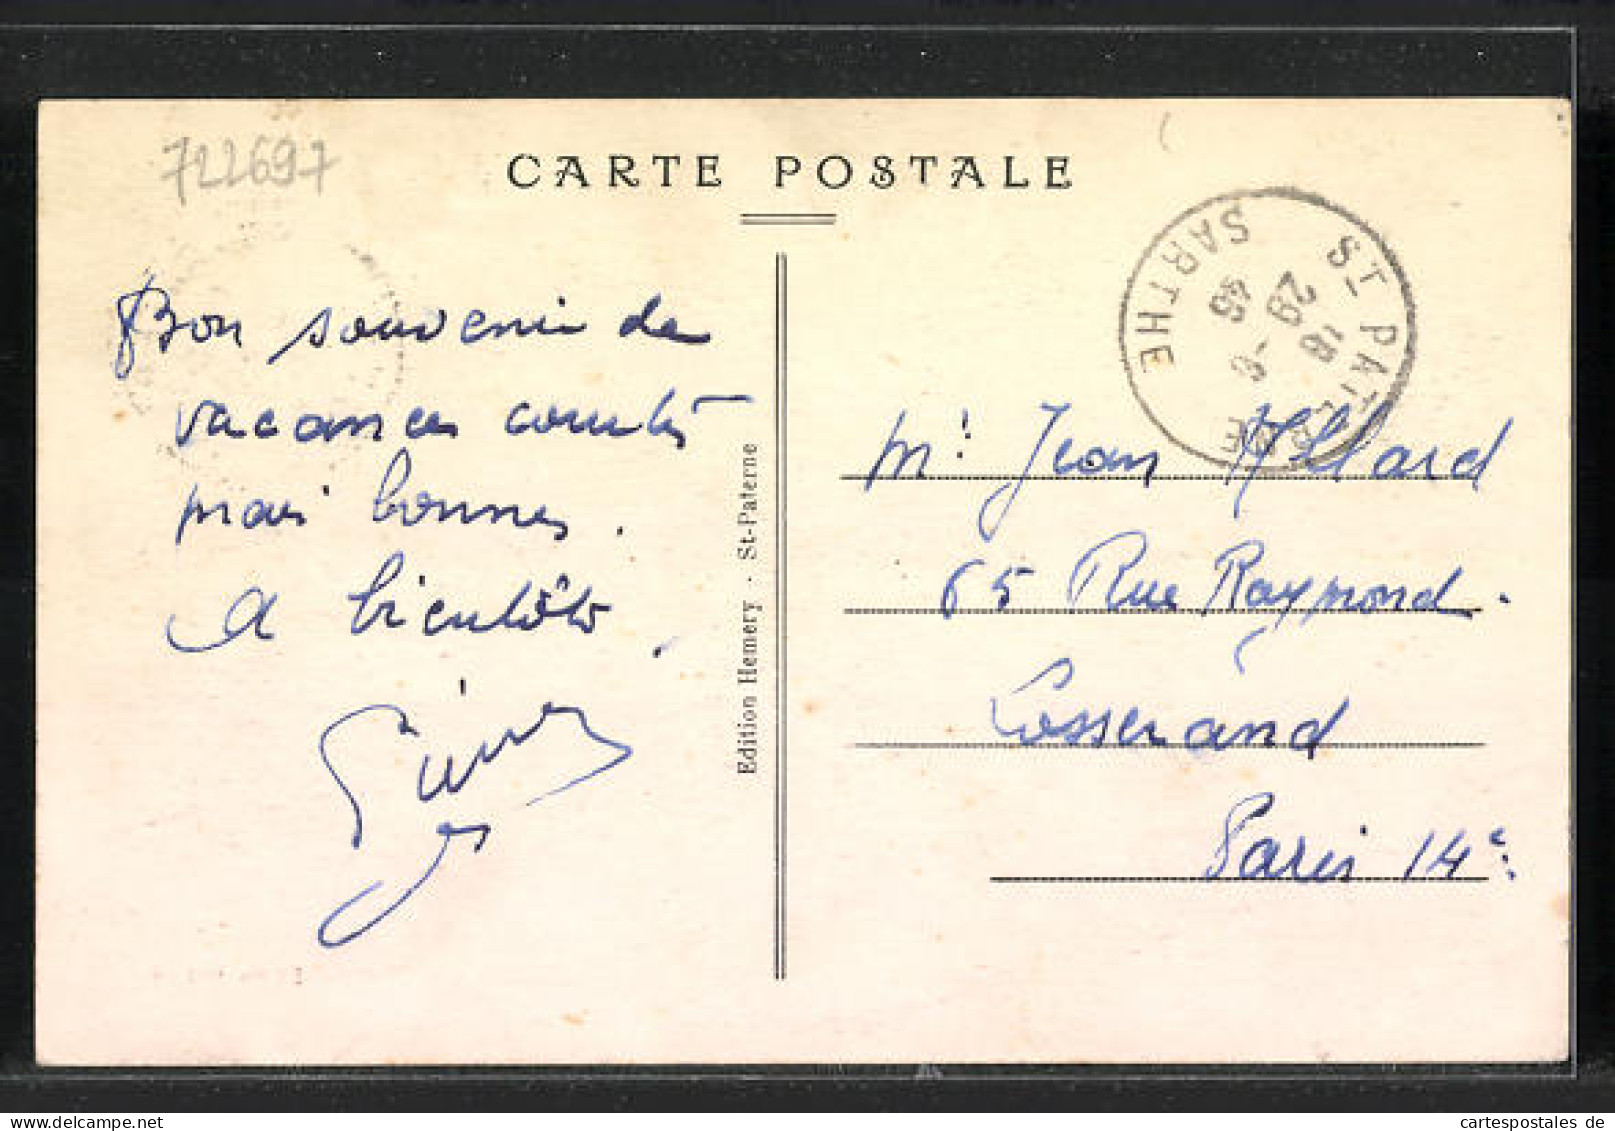 722697
CARTE POSTALE
ST PATERNE
SARTHE
18
29 -6
45
Bon souvenir de
vacances courtes
mais bonnes.
A bientôt.
Edition Hemery - St-Paterne
Mr Jean Allard
65 Rue Raymond
Losserand
Paris 14e
cartespostales de